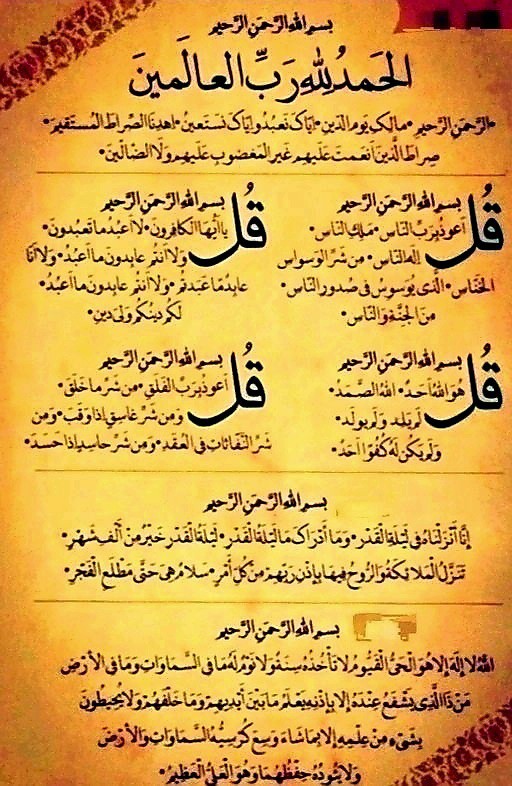 بِسمِ اللهِ الرَّحمنِ الرَّحیمِ
الحَمدُ لِلّهِ رَبِّ العالَمینَ
•الرَّحمنِ الرَّحیمِ • مالِکِ یَومِ الدّینِ • اِیّاکَ نَعبُدُ وَاِیّاکَ نَستَعینُ • اِهدِنَا الصِّراطَ المُستَقیمَ •
صِراطَ الَّذینَ اَنعَمتَ عَلَیهِم غَیرِ المَغضوبِ عَلَیهِم وَلَا الضّالّینَ •
بِسمِ اللهِ الرَّحمنِ الرَّحیمِ
قُل اَعوذُ بِرَبِّ النّاسِ • مَلِکِ النّاسِ •
اِلهِ النّاسِ • مِن شَرِّ الوَسواسِ
الخَنّاسِ • الَّذی یُوَسوِسُ فی صُدورِ النّاسِ •
مِنَ الجِنَّةِ وَالنّاسِ •
بِسمِ اللهِ الرَّحمنِ الرَّحیمِ
قُل یا اَیُّهَا الکافِرونَ • لا اَعبُدُ ما تَعبُدونَ •
وَلا اَنتُم عابِدونَ ما اَعبُدُ • وَلا اَنَا
عابِدٌ ما عَبَدتُم • وَلا اَنتُم عابِدونَ ما اَعبُدُ •
لَکُم دینُکُم وَلِیَ دینِ •
بِسمِ اللهِ الرَّحمنِ الرَّحیمِ
قُل هُوَ اللهُ اَحَدٌ • اَللهُ الصَّمَدُ •
لَم یَلِد وَلَم یولَد •
وَلَم یَکُن لَهُ کُفُوًا اَحَدٌ •
بِسمِ اللهِ الرَّحمنِ الرَّحیمِ
قُل اَعوذُ بِرَبِّ الفَلَقِ • مِن شَرِّ ما خَلَقَ •
وَمِن شَرِّ غاسِقٍ اِذا وَقَبَ • وَمِن
شَرِّ النَّفّاثاتِ فِی العُقَدِ • وَمِن شَرِّ حاسِدٍ اِذا حَسَدَ •
بِسمِ اللهِ الرَّحمنِ الرَّحیمِ
إِنَّا أَنْزَلْنَاهُ فِی لَیْلَةِ الْقَدْرِ • وَمَا أَدْرَاکَ مَا لَیْلَةُ الْقَدْرِ • لَیْلَةُ الْقَدْرِ خَیْرٌ مِنْ أَلْفِ شَهْرٍ •
تَنَزَّلُ الْمَلَائِکَةُ وَالرُّوحُ فِیهَا بِإِذْنِ رَبِّهِمْ مِنْ کُلِّ أَمْرٍ • سَلَامٌ هِیَ حَتَّى مَطْلَعِ الْفَجْرِ •
بِسمِ اللهِ الرَّحمنِ الرَّحیمِ
اللهُ لاَ إِلَهَ إِلاَّ هُوَ الْحَیُّ الْقَیُّومُ لاَ تَأْخُذُهُ سِنَةٌ وَلاَ نَوْمٌ لَهُ مَا فِی السَّمَاوَاتِ وَمَا فِی الأَرْضِ
مَنْ ذَا الَّذِی یَشْفَعُ عِنْدَهُ إِلاَّ بِإِذْنِهِ یَعْلَمُ مَا بَیْنَ أَیْدِیهِمْ وَمَا خَلْفَهُمْ وَلاَ یُحِیطُونَ
بِشَیْءٍ مِنْ عِلْمِهِ إِلاَّ بِمَا شَاءَ وَسِعَ کُرْسِیُّهُ السَّمَاوَاتِ وَالأَرْضَ
وَلاَ یَئُودُهُ حِفْظُهُمَا وَهُوَ الْعَلِیُّ الْعَظِیمُ •